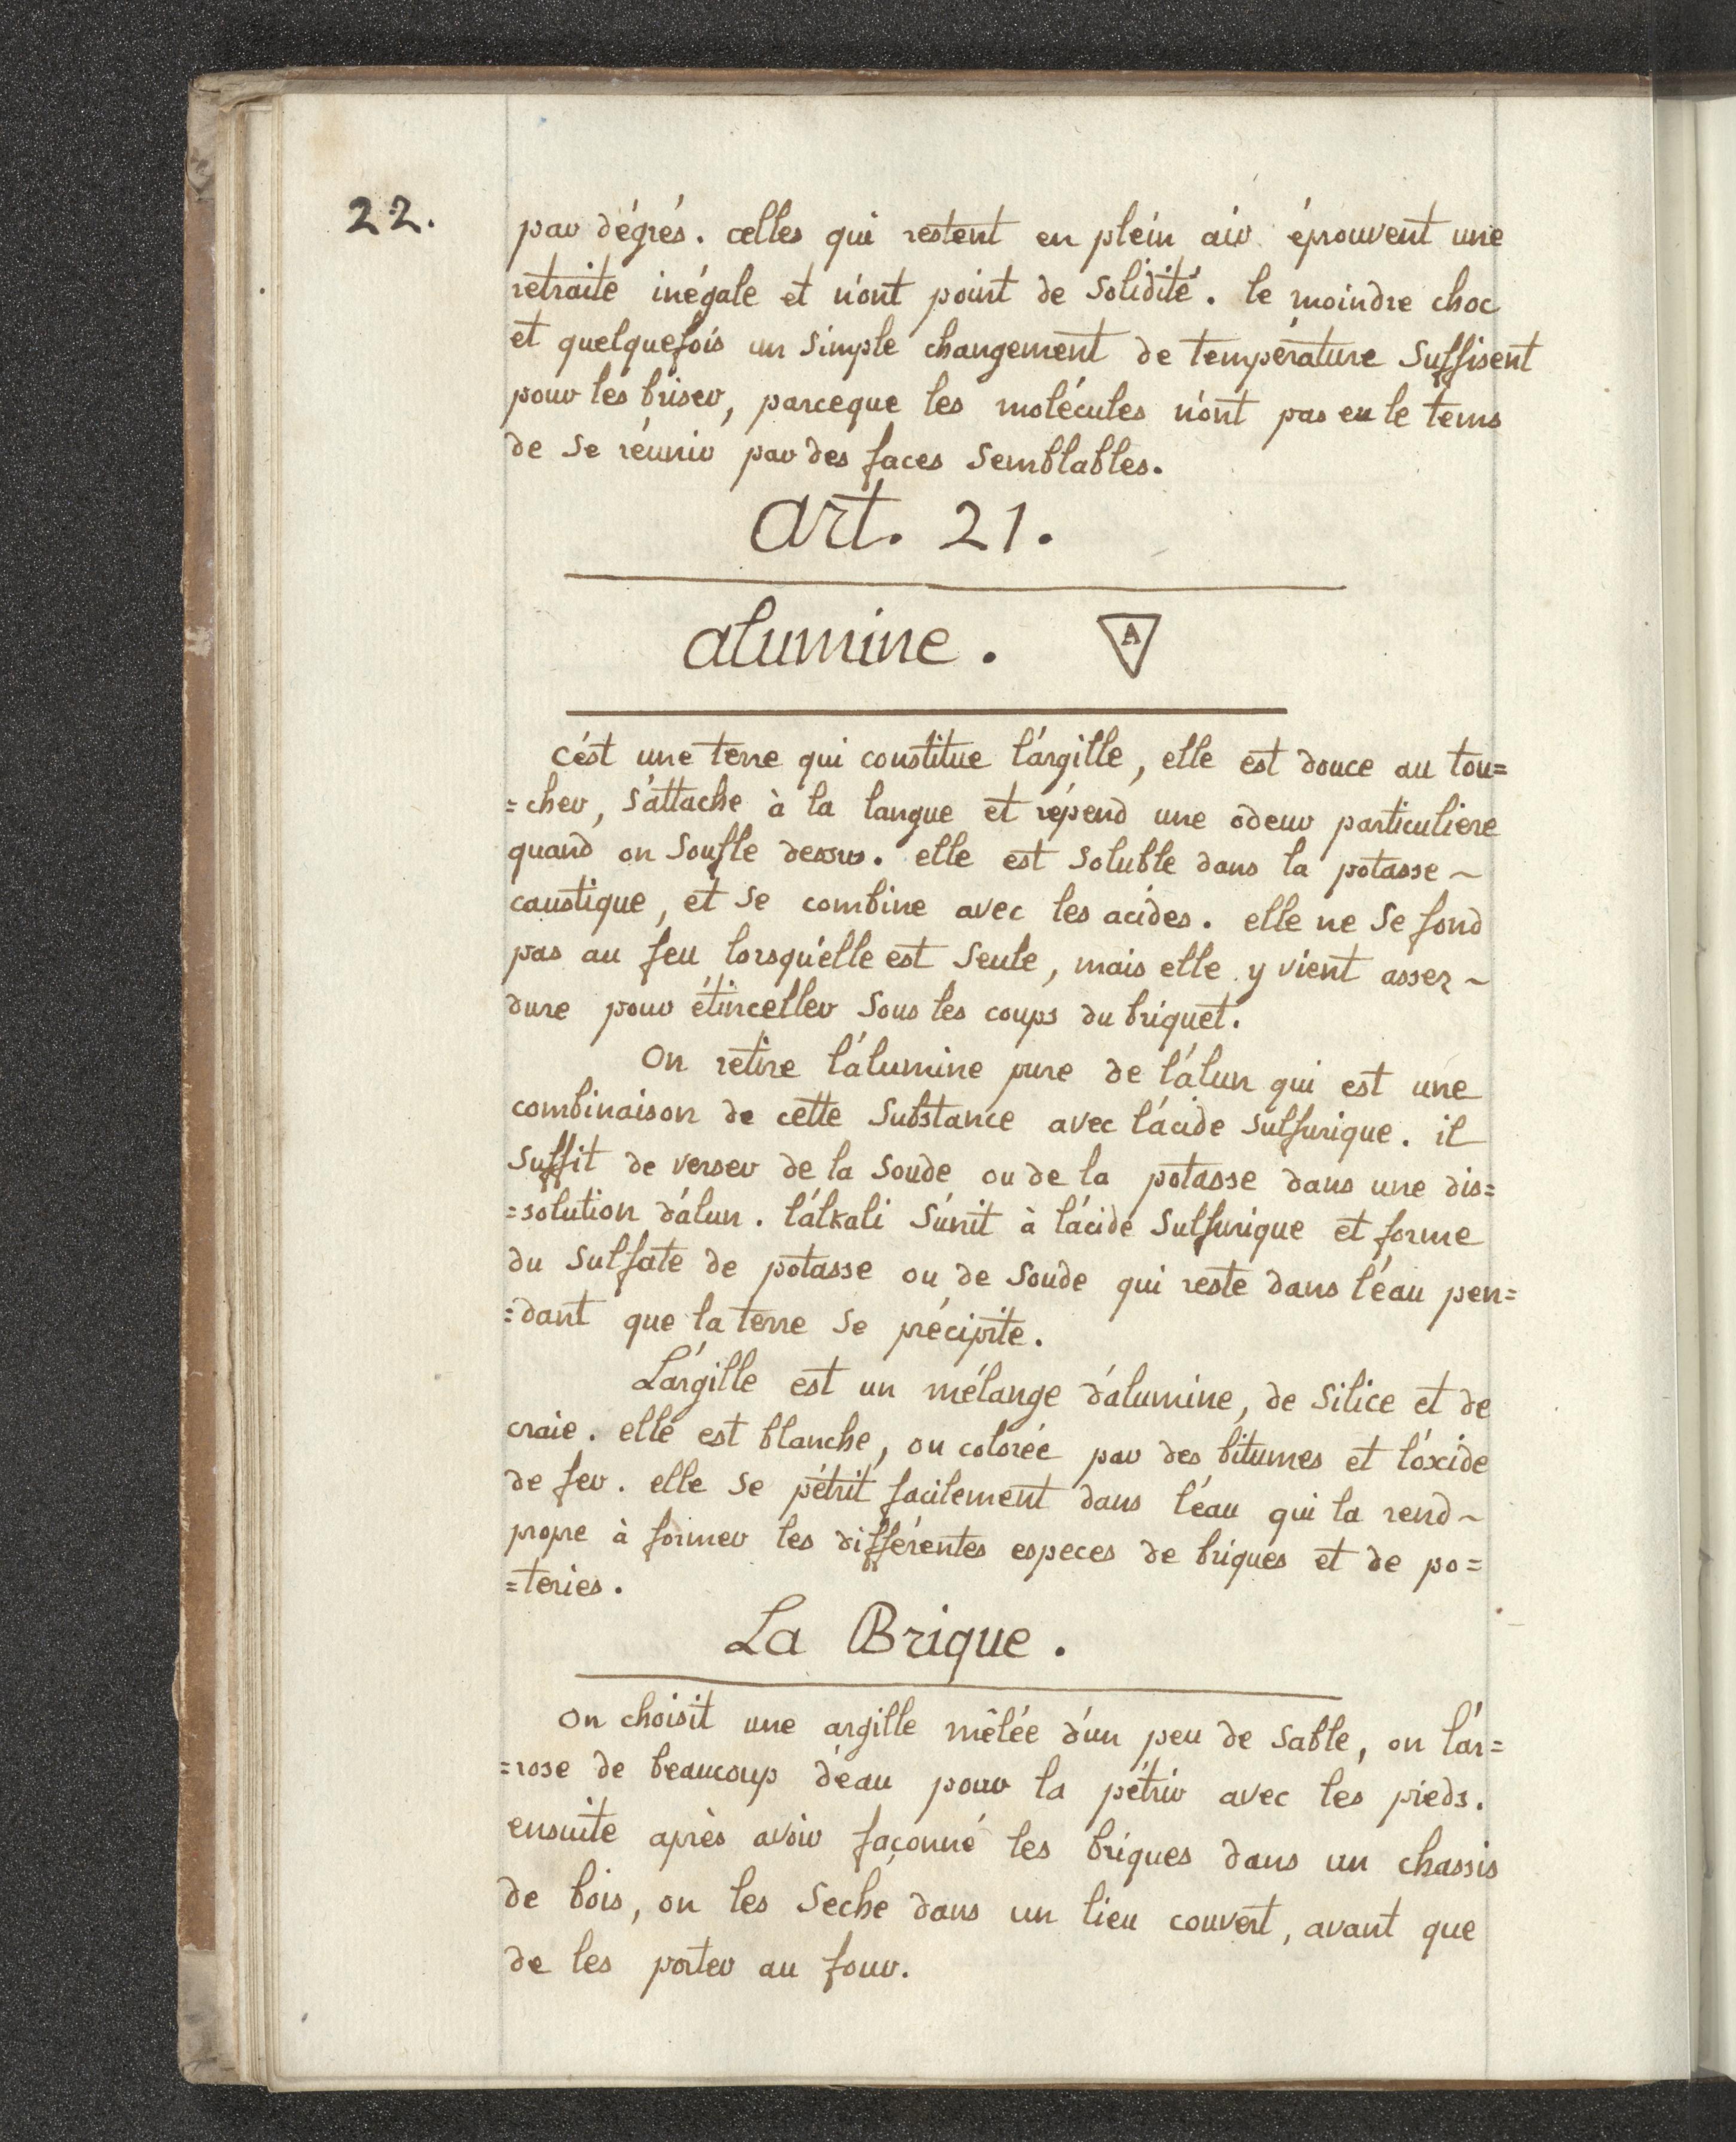 22.
par dégrés. celles qui restent en plein air éprouvent une
retraite inégale et n'ont point de Solidité. le moindre choc
et quelquefois un Simple changement de température Suffisent
pour les briser, parceque les molécules n'ont pas eu le tems
de Se réunir par des faces Semblables.
art. 21.
alumine. A
c'est une terre qui constitue l'argille, elle est douce au tou=
=cher, S'attache à la langue et répend une odeur particuliere
quand on Soufle dessus. elle est Soluble dans la potasse ~
caustique, et Se combine avec les acides. elle ne Se fond
pas au feu lorsqu'elle est Seule, mais elle y vient assez ~
dure pour étinceller Sous les coups du briquet.
On retire l'alumine pure de l'alun qui est une
combinaison de cette Substance avec l'acide Sulfurique. il
Suffit de verser de la Soude ou de la potasse dans une dis=
=solution d'alun. l'alkali S'unit à l'acide Sulfurique et forme
du Sulfate de potasse ou de Soude qui reste dans l'eau pen=
=dant que la terre Se précipite.
L'argille est un mélange d'alumine, de Silice et de
craie. elle est blanche, ou colorée par des bitumes et l'oxide
de fer. elle Se pétrit facilement dans l'eau qui la rend ~
propre à former les différentes especes de briques et de po=
=teries.
La Brique.
On choisit une argille mêlée d'un peu de Sable, on l'ar=
=rose de beaucoup d'eau pour la pétrir avec les pieds.
ensuite après avoir façonné les briques dans un chassis
de bois, on les Seche dans un lieu couvert, avant que
de les porter au four.